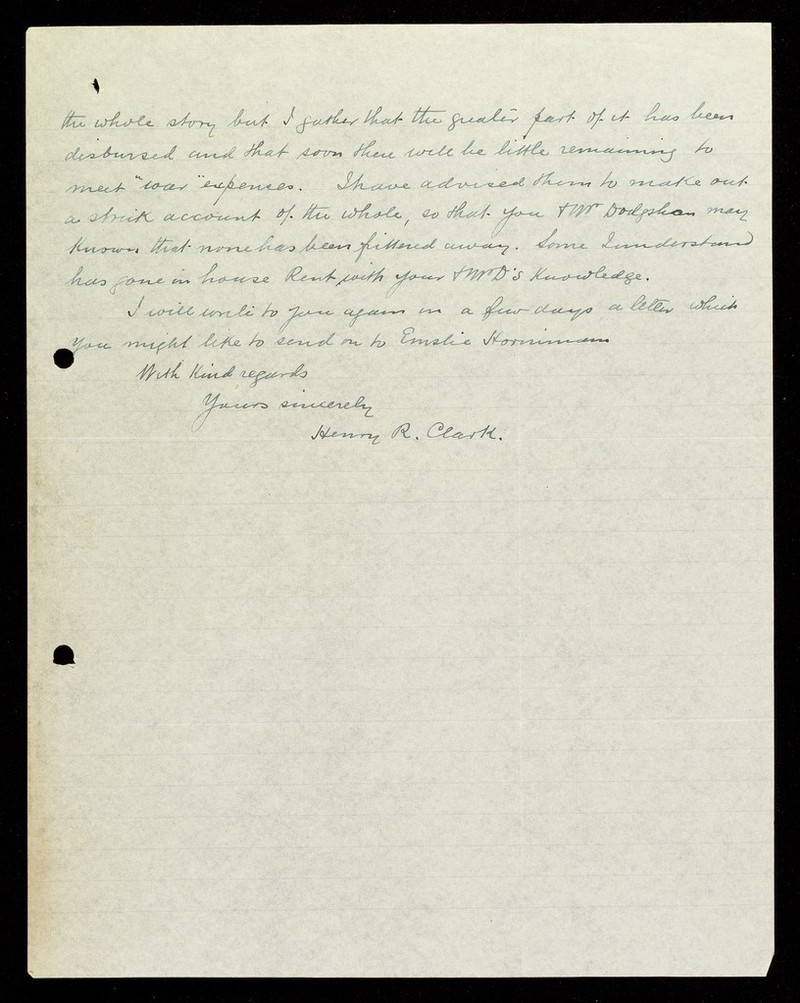 the whole story but I gather that the greater part of it has been
disbursed and that soon there will be little remaining to
meet "war" expenses. I have advised them to make out
a strick account of the whole, so that you & Mr Dodgshun may
known that none has been fittered away. Some I understand
has gone in house Rent, with your & Mr D's Knowledge.
I will write to you again in a few days a letter which
you might like to send on to Emslie Horniman
With Kind regards
Yours sincerely
Henry R. Clark.